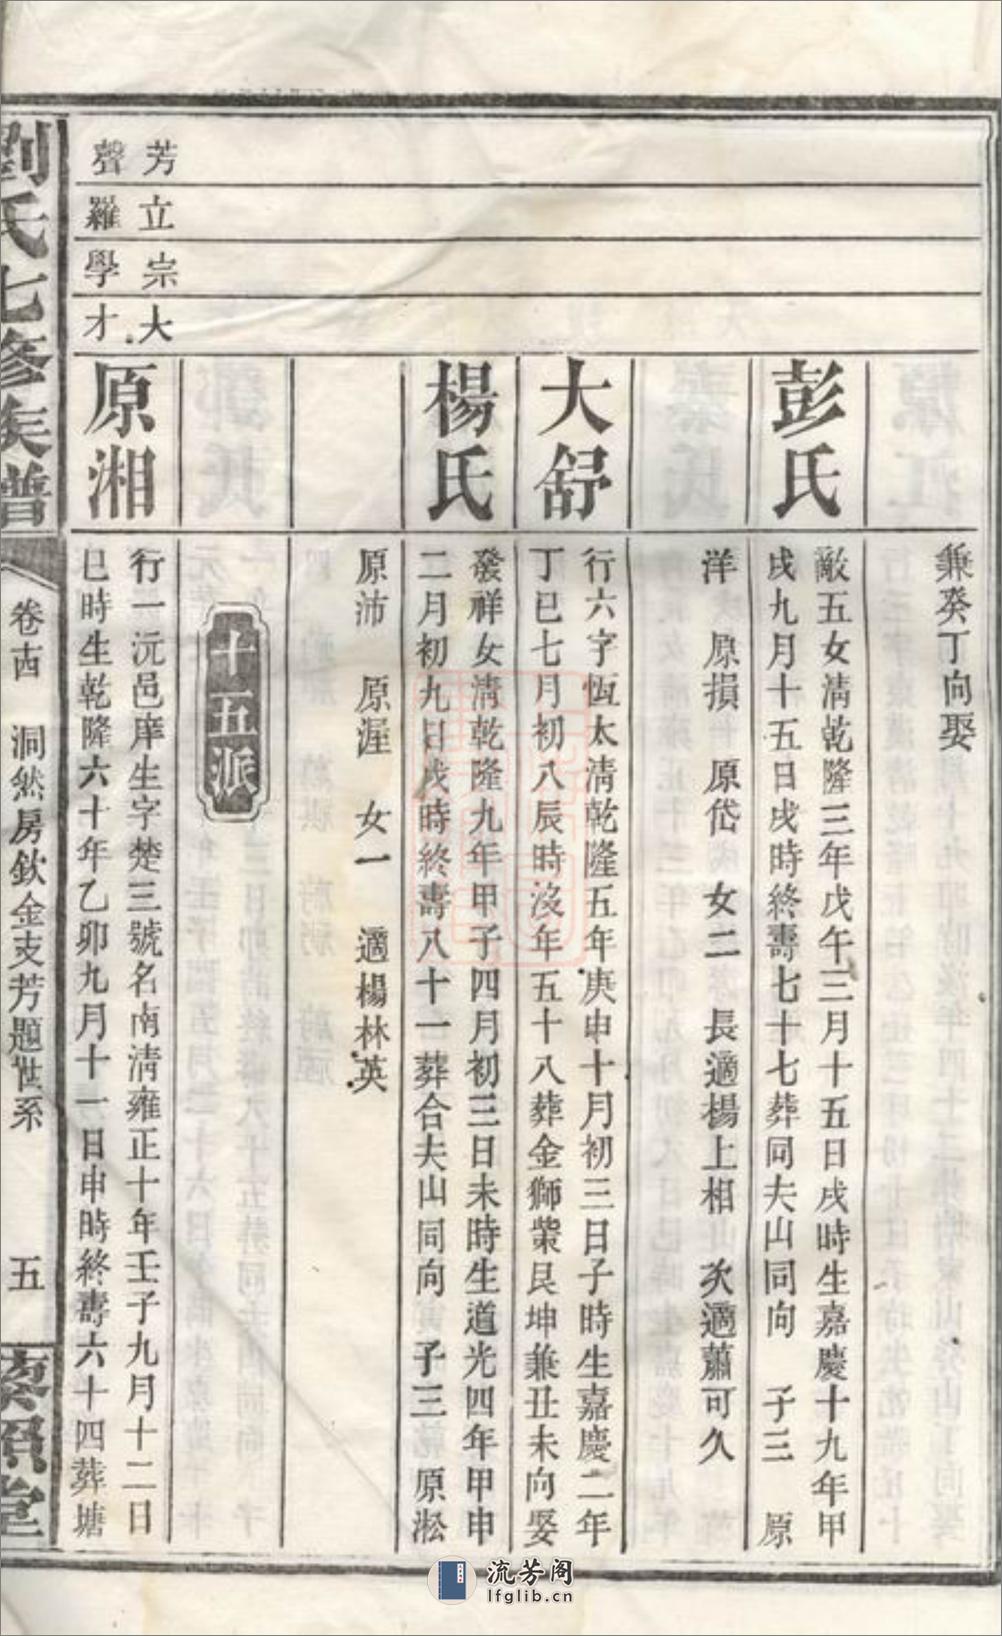 兼癸丁向娶
彭氏
敵五女淸乾隆三年戊午三月十五日戌時生嘉慶十九年甲
戌九月十五日戌時終壽七十七葬同夫山同向 子三 原
洋 原損 原岱 女二 長適楊上相 次適蕭可久
大舒
行六字恆太淸乾隆五年庚申十月初三日子時生嘉慶二年
丁巳七月初八辰時沒年五十八葬金獅艮坤兼丑未向娶
楊氏
發祥女淸乾隆九年甲子四月初三日未時生道光四年甲申
二月初九日戌時終壽八十一葬合夫山同向 子三 原淞
原沛 原渥 女一 適楊林英
十五派
芳聲
立羅
宗學
大才
原湘
行一沅邑庠生字楚三號名南淸雍正十年壬子九月十二日
巳時生乾隆六十年乙卯九月十一日申時終壽六十四葬塘
劉氏七修族譜
卷 洞然房欽金支芳題世系
五
藜照堂
流芳阁
lfglib.cn